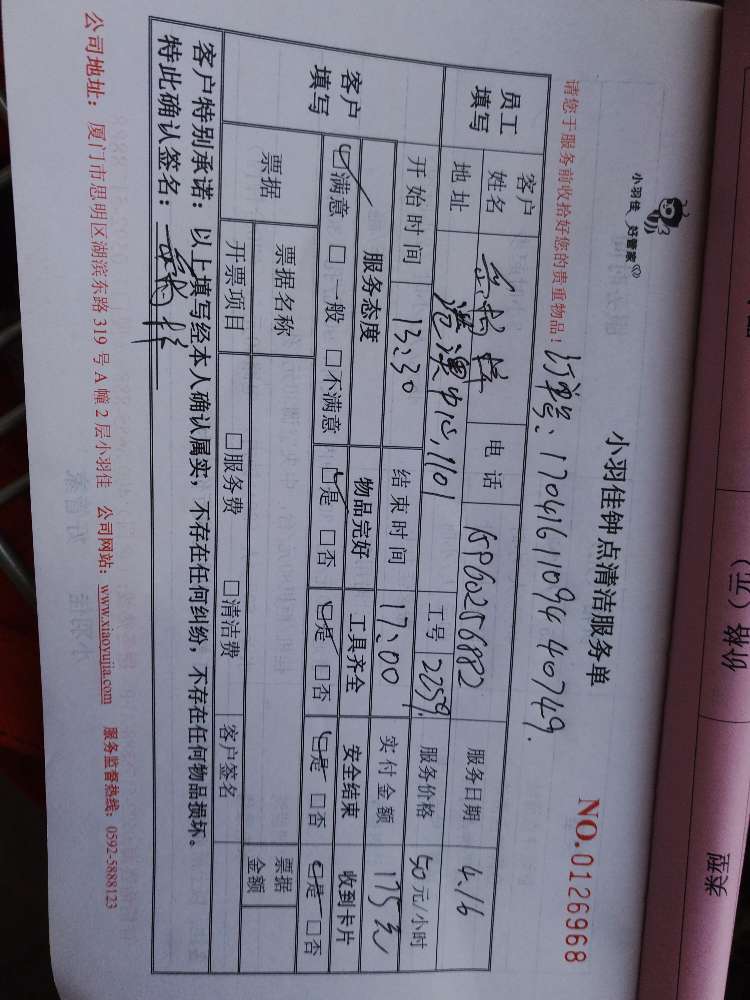 小羽佳 好管家
小羽佳钟点清洁服务单
NO.0126968
请您于服务前收拾好您的贵重物品！
订单号：1704161109440749.
员工填写
客户姓名 电话 15960256882 服务日期 4.16
地址 港澳中心,1101 工号 2259. 服务价格 50元/小时
开始时间 13:30 结束时间 17:00 实付金额 175元
客户填写
服务态度 物品完好 工具齐全 安全结束 收到卡片
☑满意 □一般 □不满意 ☑是 □否 ☑是 □否 ☑是 □否 ☑是 □否
票据 票据名称 票据金额
开票项目 □服务费 □清洁费 客户签名
客户特别承诺：以上填写经本人确认属实，不存在任何纠纷，不存在任何物品损坏。
特此确认签名：
公司地址：厦门市思明区湖滨东路 319 号 A 幢 2 层小羽佳 公司网站：www.xiaoyujia.com 服务监督热线：0592-5888123
价格（五）